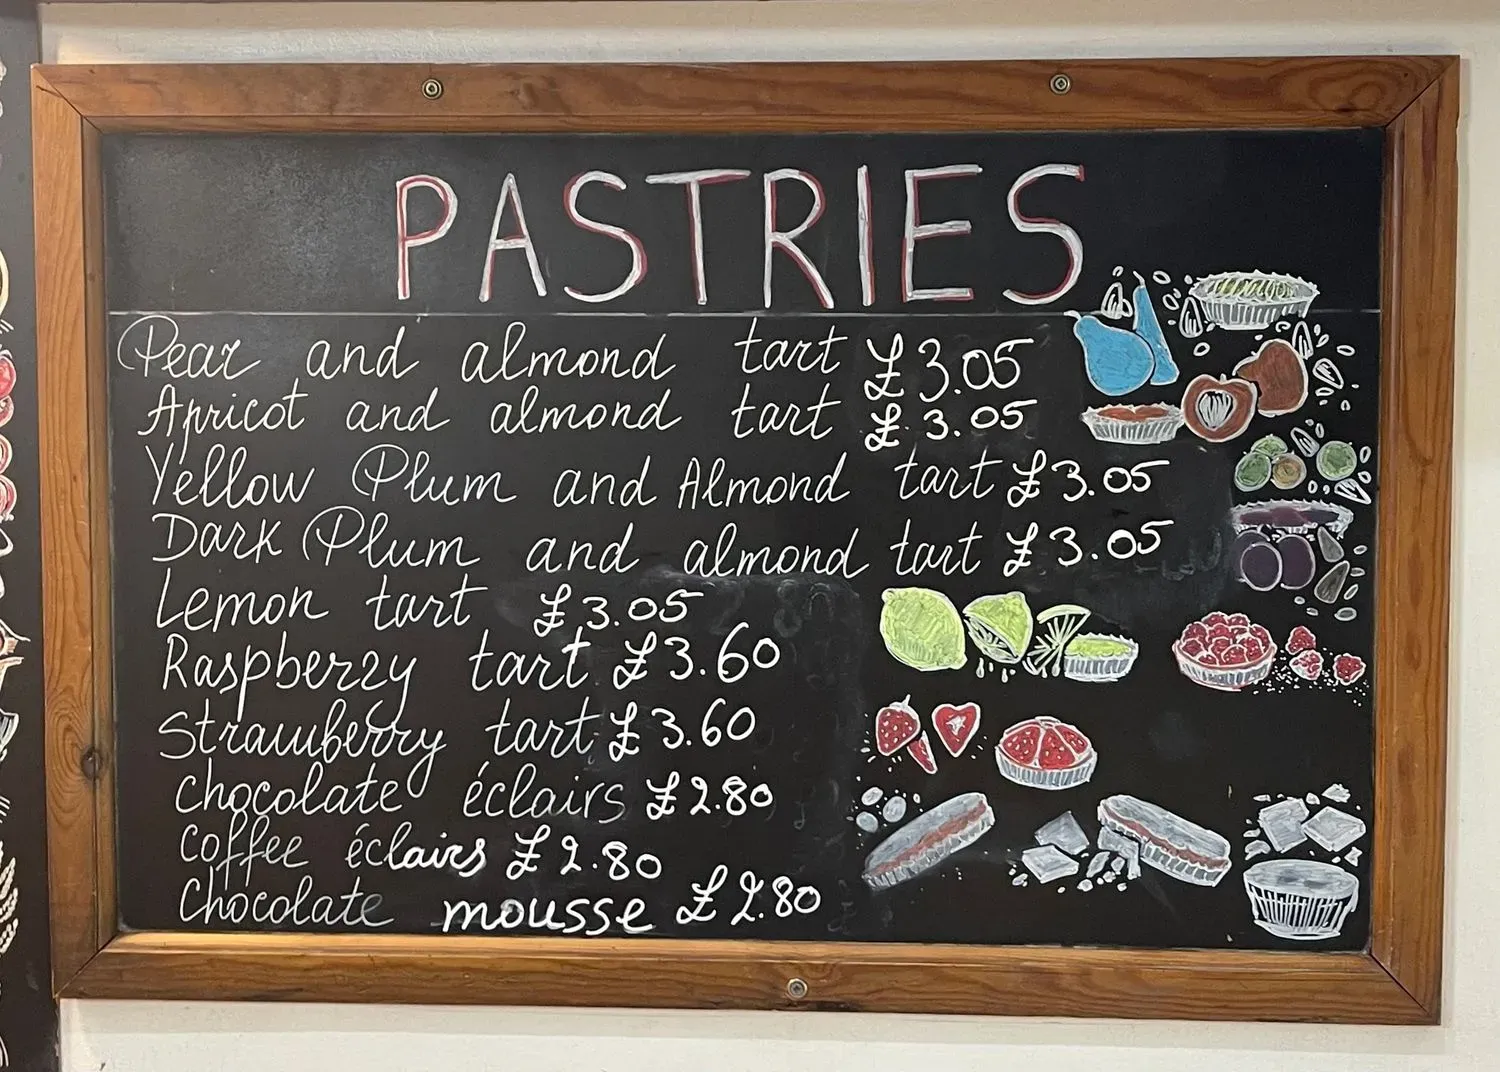 PASTRIES
Pear and almond tart £3.05
Apricot and almond tart £3.05
Yellow Plum and Almond tart £3.05
Dark Plum and almond tart £3.05
Lemon tart £3.05
Raspberry tart £3.60
Strawberry tart £3.60
chocolate éclairs £2.80
coffee éclairs £2.80
Chocolate mousse £2.80